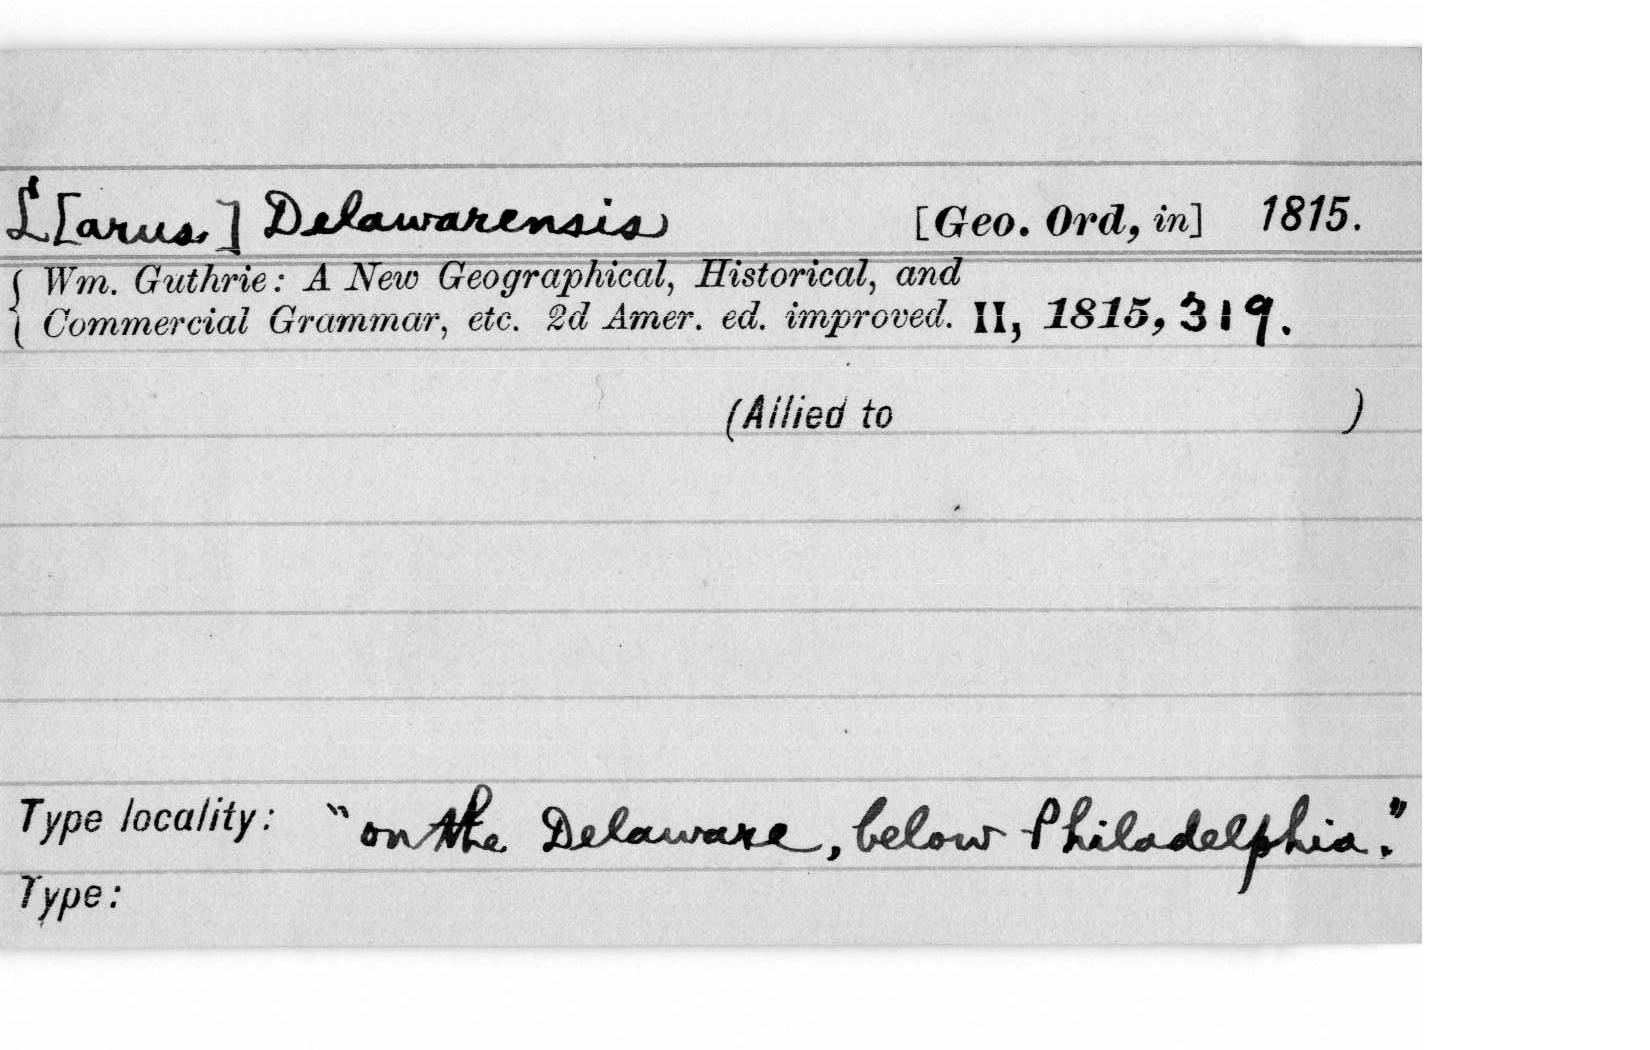 L[arus.] Delawarensis [Geo. Ord, in] 1815.
Wm. Guthrie: A New Geographical, Historical, and
Commercial Grammar, etc. 2d Amer. ed. improved. II, 1815, 319.
(Allied to )
Type locality: "on the Delaware, below Philadelphia."
Type: